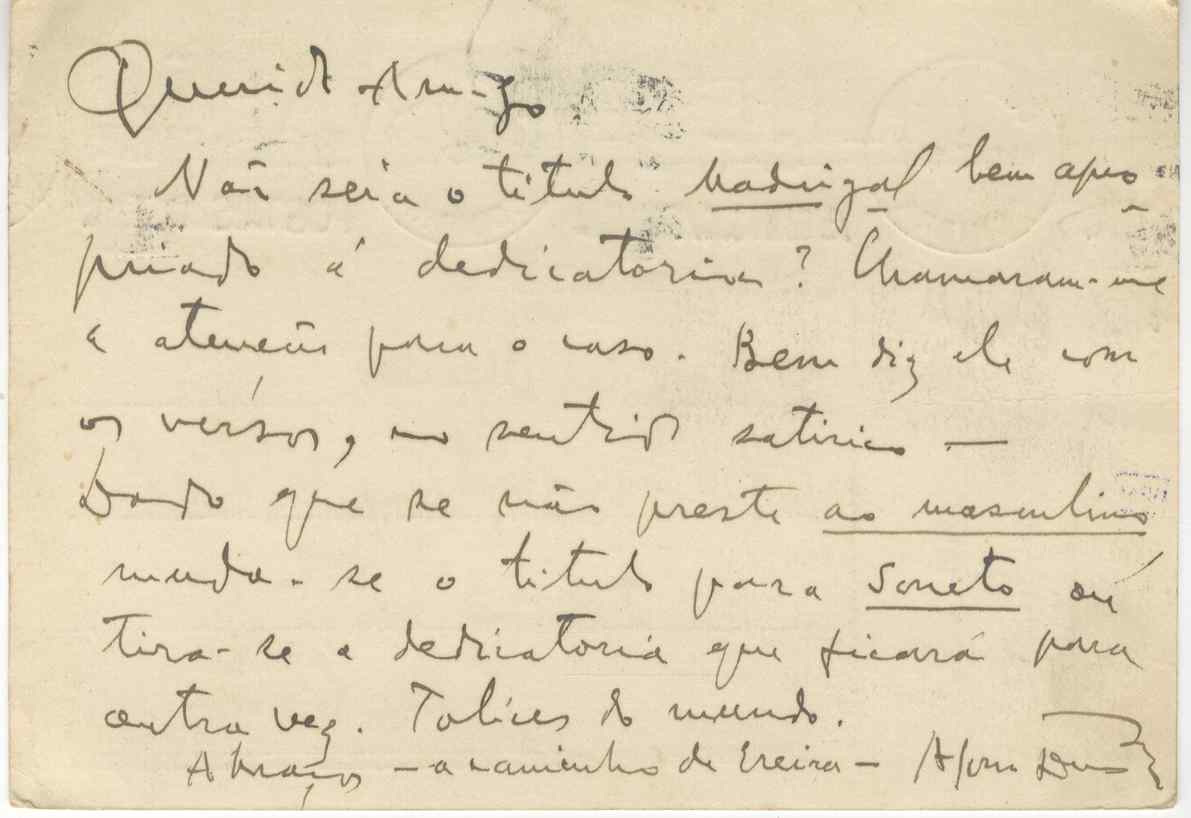 Querido Amigo
Não seria o titulo Madrigal bem apro-
priado á dedicatoria? Chamaram-me
a atenção para o caso. Bem diz ele com
os vérsos, no sentido satirico —
Dando que se não preste ao masculino
muda-se o titulo para Soneto ou
tira-se a dedicatoria que ficará para
outra vez. Tolices do mundo.
Abraços — a caminho de Ereira — Afonso Duarte